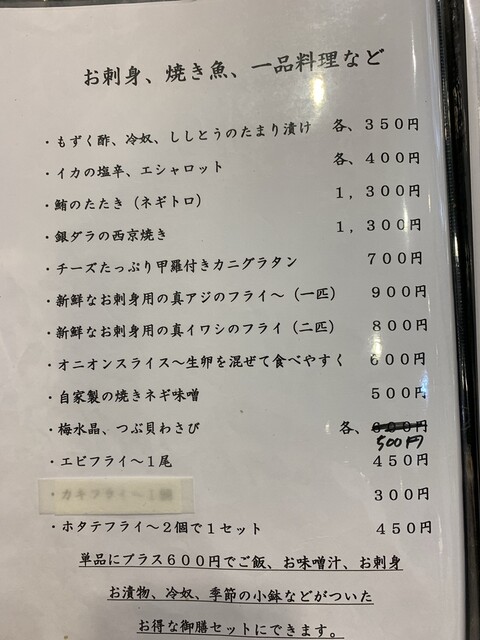 お刺身、焼き魚、一品料理など
・もずく酢、冷奴、ししとうのたまり漬け 各、350円
・イカの塩辛、エシャロット 各、400円
・鮪のたたき（ネギトロ） 1,300円
・銀ダラの西京焼き 1,300円
・チーズたっぷり甲羅付きカニグラタン 700円
・新鮮なお刺身用の真アジのフライ～（一匹） 900円
・新鮮なお刺身用の真イワシのフライ（二匹） 800円
・オニオンスライス～生卵を混ぜて食べやすく 600円
・自家製の焼きネギ味噌 500円
・梅水晶、つぶ貝わさび 各、600円
500円
・エビフライ～1尾 450円
・カキフライ～1 300円
・ホタテフライ～2個で1セット 450円
単品にプラス600円でご飯、お味噌汁、お刺身
お漬物、冷奴、季節の小鉢などがついた
お得な御膳セットにできます。